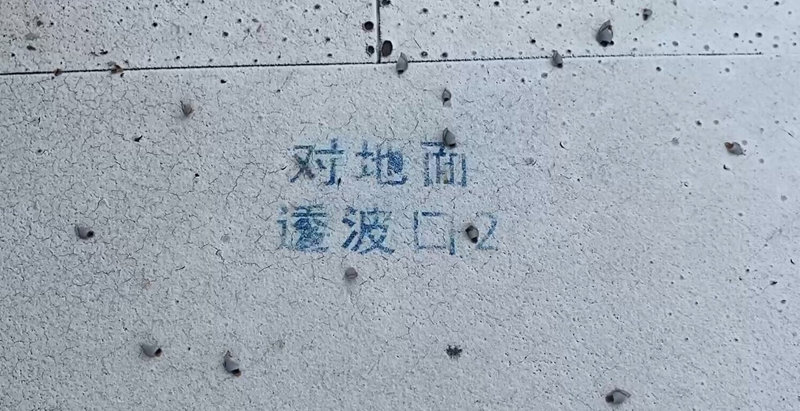 对地面
透波口2